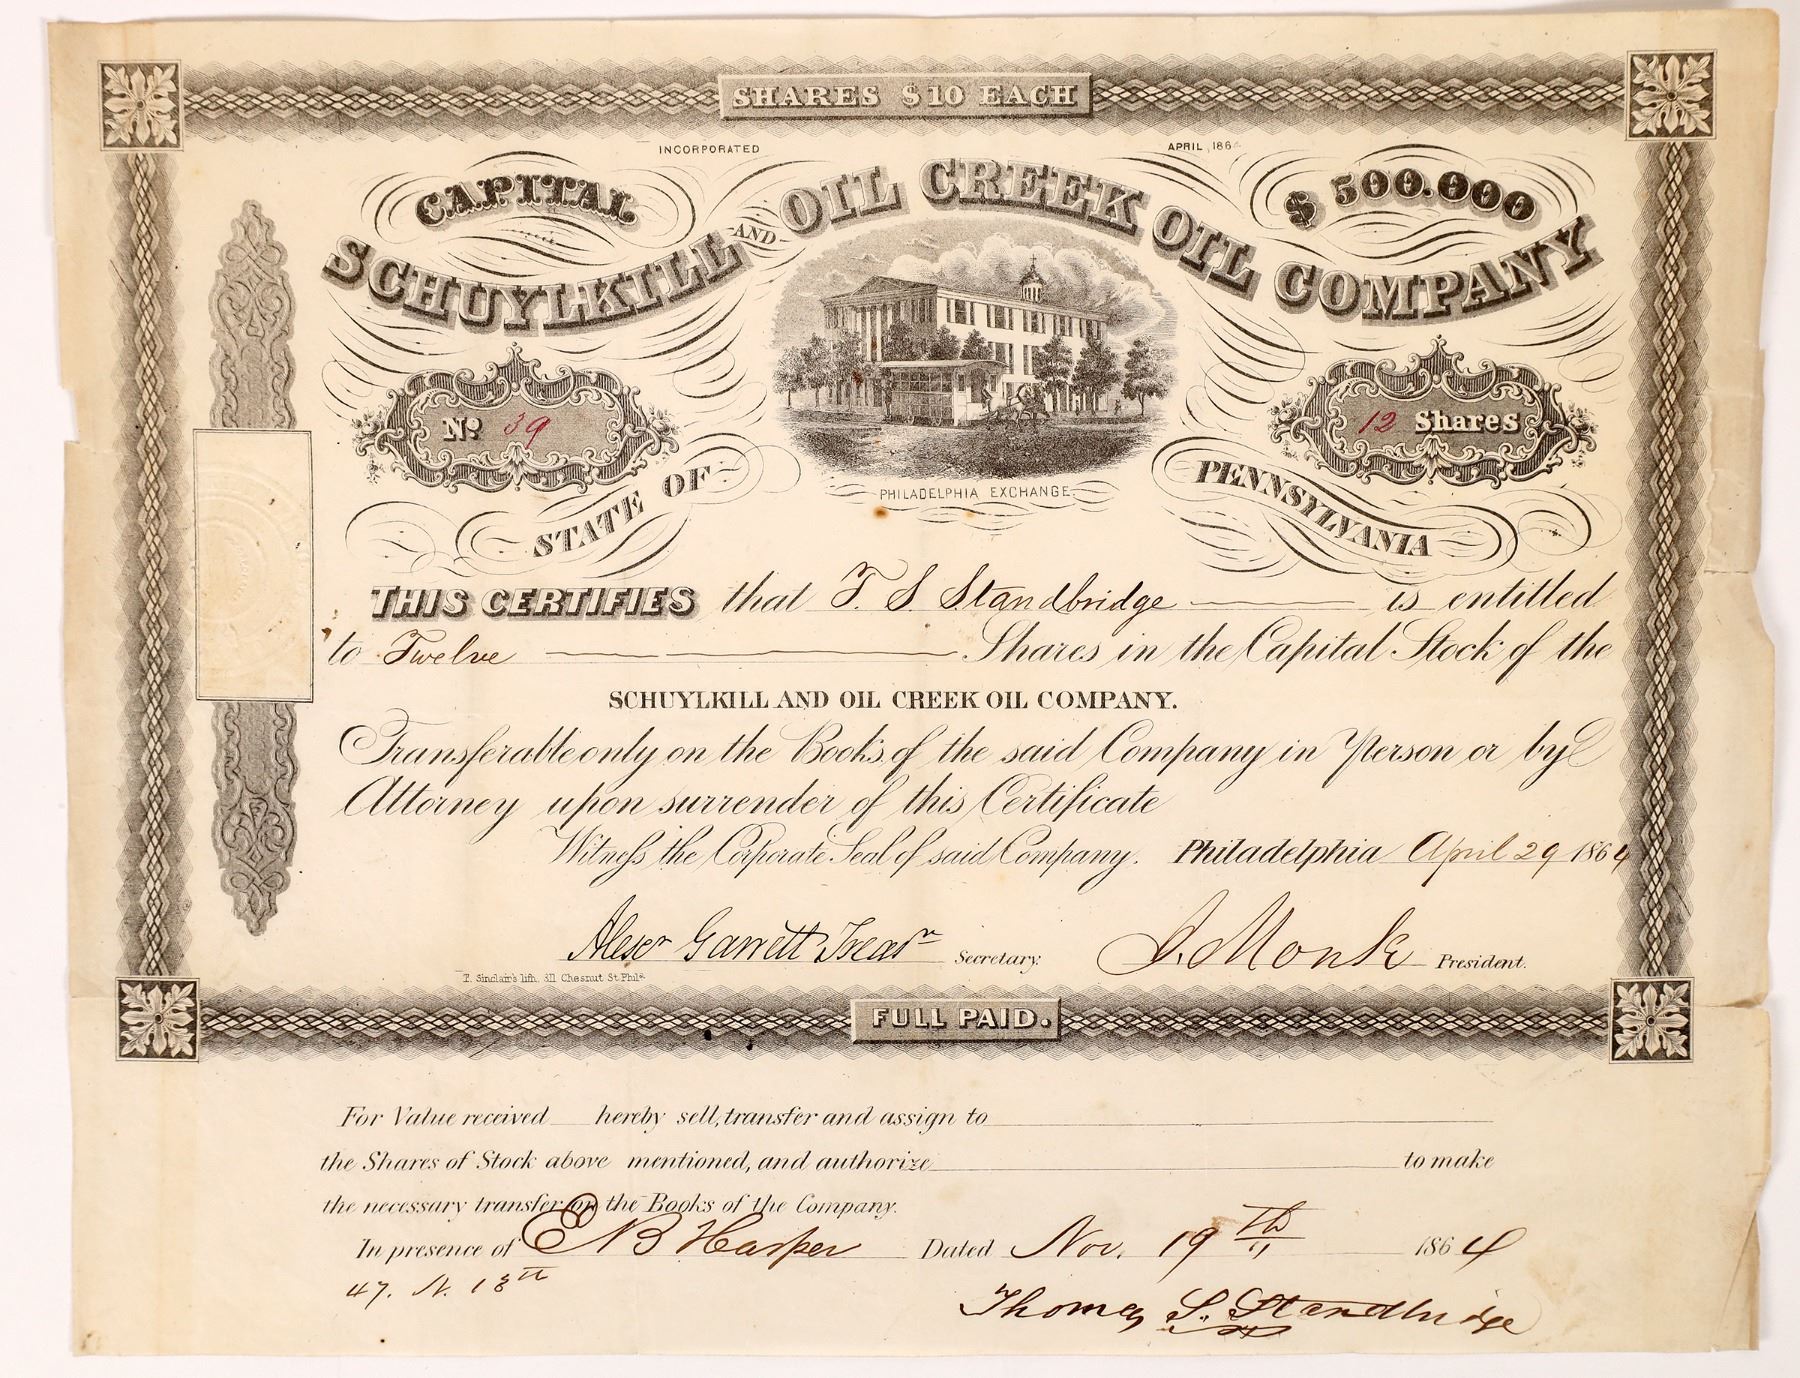 SHARES $10 EACH
INCORPORATED APRIL, 1864
CAPITAL $500.000
SCHUYLKILL AND OIL CREEK OIL COMPANY
No. 39
12 Shares
PHILADELPHIA EXCHANGE.
STATE OF PENNSYLVANIA
THIS CERTIFIES that T. S. Standbridge is entitled
to Twelve Shares in the Capital Stock of the
SCHUYLKILL AND OIL CREEK OIL COMPANY.
Transferable only on the Books of the said Company in Person or by
Attorney upon surrender of this Certificate
Witness the Corporate Seal of said Company. Philadelphia April 29 1864
Alexr Garrett Treasr Secretary. J. Monk President.
T. Sinclair's lith. 311 Chesnut St. Phila.
FULL PAID.
For Value received hereby sell, transfer and assign to
the Shares of Stock above mentioned, and authorize to make
the necessary transfer on the Books of the Company.
In presence of E N B Harper Dated Nov. 19th 1864
47. N. 13th
Thomas S. Standbridge